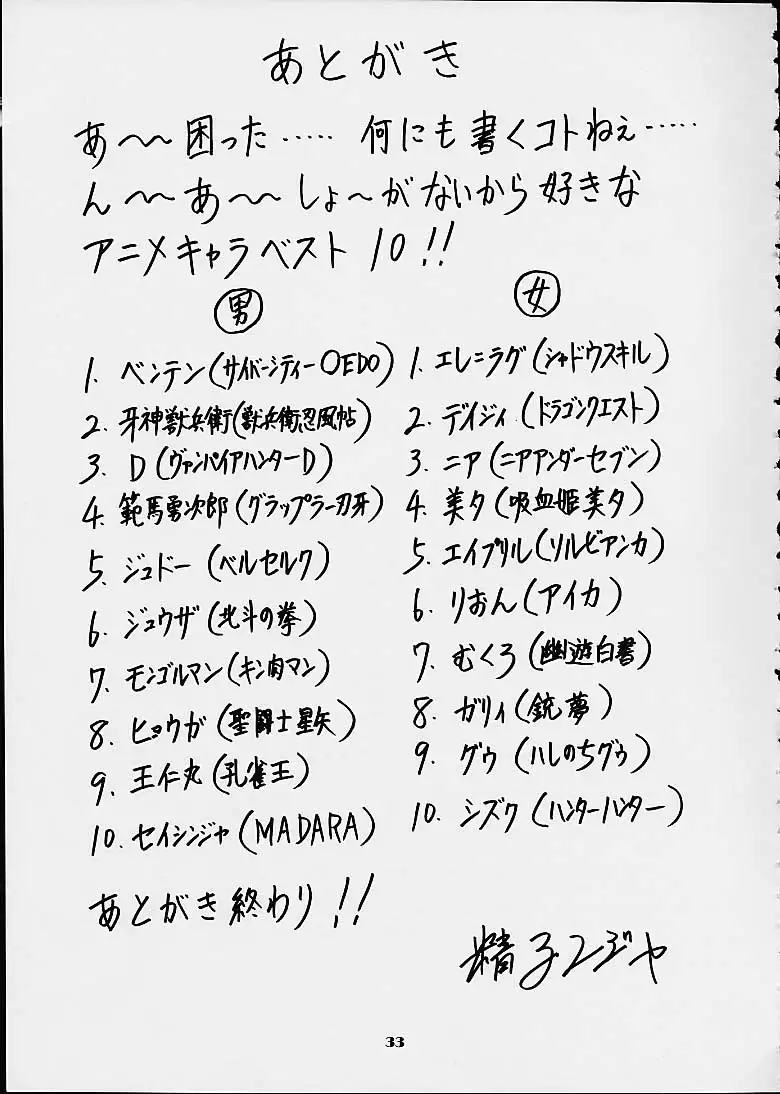 あとがき
あ～～困った…… 何にも書くコトねぇ……
ん～～あ～～しょ～がないから好きな
アニメキャラベスト10!!
男
1. ベンテン(サイバーシティーOEDO)
2. 牙神獣兵衛(獣兵衛忍風帖)
3. D(ヴァンパイアハンターD)
4. 範馬勇次郎(グラップラー刃牙)
5. ジュドー(ベルセルク)
6. ジュウザ(北斗の拳)
7. モンゴルマン(キン肉マン)
8. ヒョウガ(聖闘士星矢)
9. 王仁丸(孔雀王)
10. セイシンジャ(MADARA)
女
1. エレ=ラグ(シャドウスキル)
2. デイジィ(ドラゴンクエスト)
3. ニア(ニアアンダーセブン)
4. 美夕(吸血姫美夕)
5. エイプリル(ソルビアンカ)
6. りおん(アイカ)
7. むくろ(幽遊白書)
8. ガリィ(銃夢)
9. グゥ(ハレのちグゥ)
10. シズク(ハンターハンター)
あとがき終わり!!
精子ンジャ
33